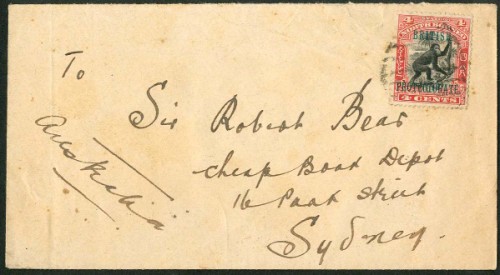 4 NORTH BORNEO 4
BRITISH
PROTECTORATE
4 CENTS
To
Sir Robert Bear
Cheap Book Depot
16 Park Street
Sydney
Australia